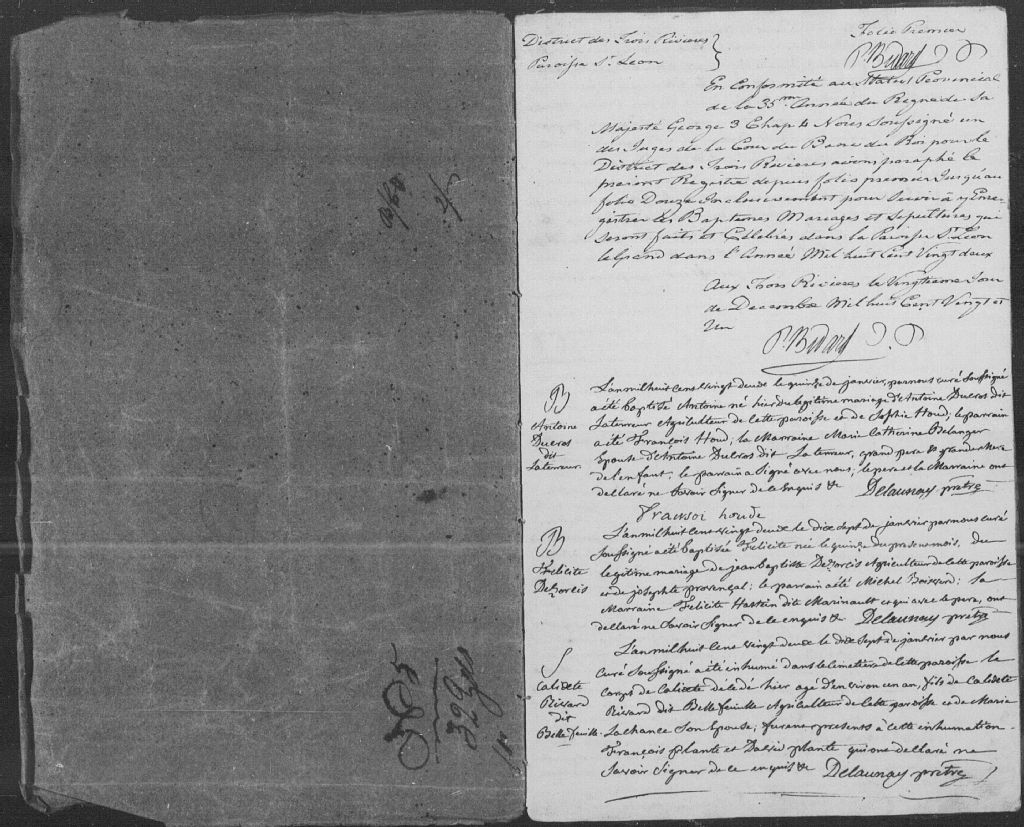 District des Trois Rivieres
Paroisse St. Leon
Folio Premier
P. Bedard
En Conformité au Statut Provincial
de la 35me Année du Regne de Sa
Majesté George 3 Chap 4 Nous Soussigné un
des Juges de la Cour du Banc du Roi pour le
District des Trois Rivieres avons paraphé le
present Registre depuis folio premier Jusqu'au
folio Douze Inclusivement pour Servir à y Enre-
gistrer les Baptemes Mariages et Sepultures qui
seront faits et Célébrés dans la Paroisse St. Leon
le Grand dans l'Année Mil huit Cent Vingt deux
Aux Trois Rivieres le Vingtieme Jour
de Decembre Mil huit Cent Vingt et
Un
P. Bedard
B
Antoine
Ducros
dit
Laterreur
L'an mil huit cens vingt deux le quinze de janvier, par nous curé Soussigné
a été baptisé Antoine né hier du legitime mariage d'Antoine Ducros dit
Laterreur Agriculteur de cette paroisse et de Sophie Houd; le parrain
a été François Houd; la Marraine Marie Catherine Belanger
Epouse d'Antoine Ducros dit Laterreur, grand pere & grande Mere
de l'enfant, le parrain a Signé avec nous, le pere et la Marraine ont
declaré ne Savoir Signer de ce enquis &
Delaunay prêtre
Fransoi houde
B
Felicite
L'an mil huit cens vingt deux le dix sept de janvier par nous curé
Soussigné a été baptisée Felicite née le quinze du present mois, du
legitime mariage de jean baptiste Agriculteur de cette paroisse
et de josephte provençal; le parrain a été Michel; la
Marraine Felicite dite Marinault et qui avec le pere, ont
declaré ne Savoir Signer de ce enquis &
Delaunay prêtre
S
Calixte
Rivard
dit
Bellefeuille
L'an mil huit cens vingt deux le dix sept de janvier par nous
curé Soussigné a été inhumé dans le cimetiere de cette paroisse le
corps de Calixte décédé hier agé d'environ un an, fils de Calixte
Rivard dit Bellefeuille Agriculteur de cette paroisse et de Marie
Lachance Son Epouse; furent presents à cette inhumation
François plante et plante qui ont declaré ne
Savoir Signer de ce enquis &
Delaunay prêtre